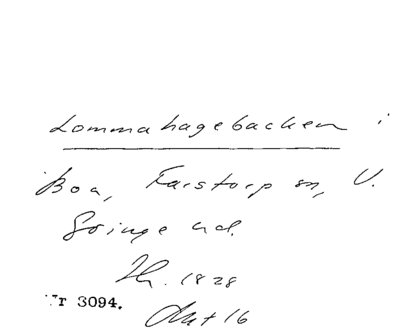 Lommahagebacken i
Boa, Farstorp sn, V.
Göinge hd.
Lh. 1828
Akt 16
Nr 3094.